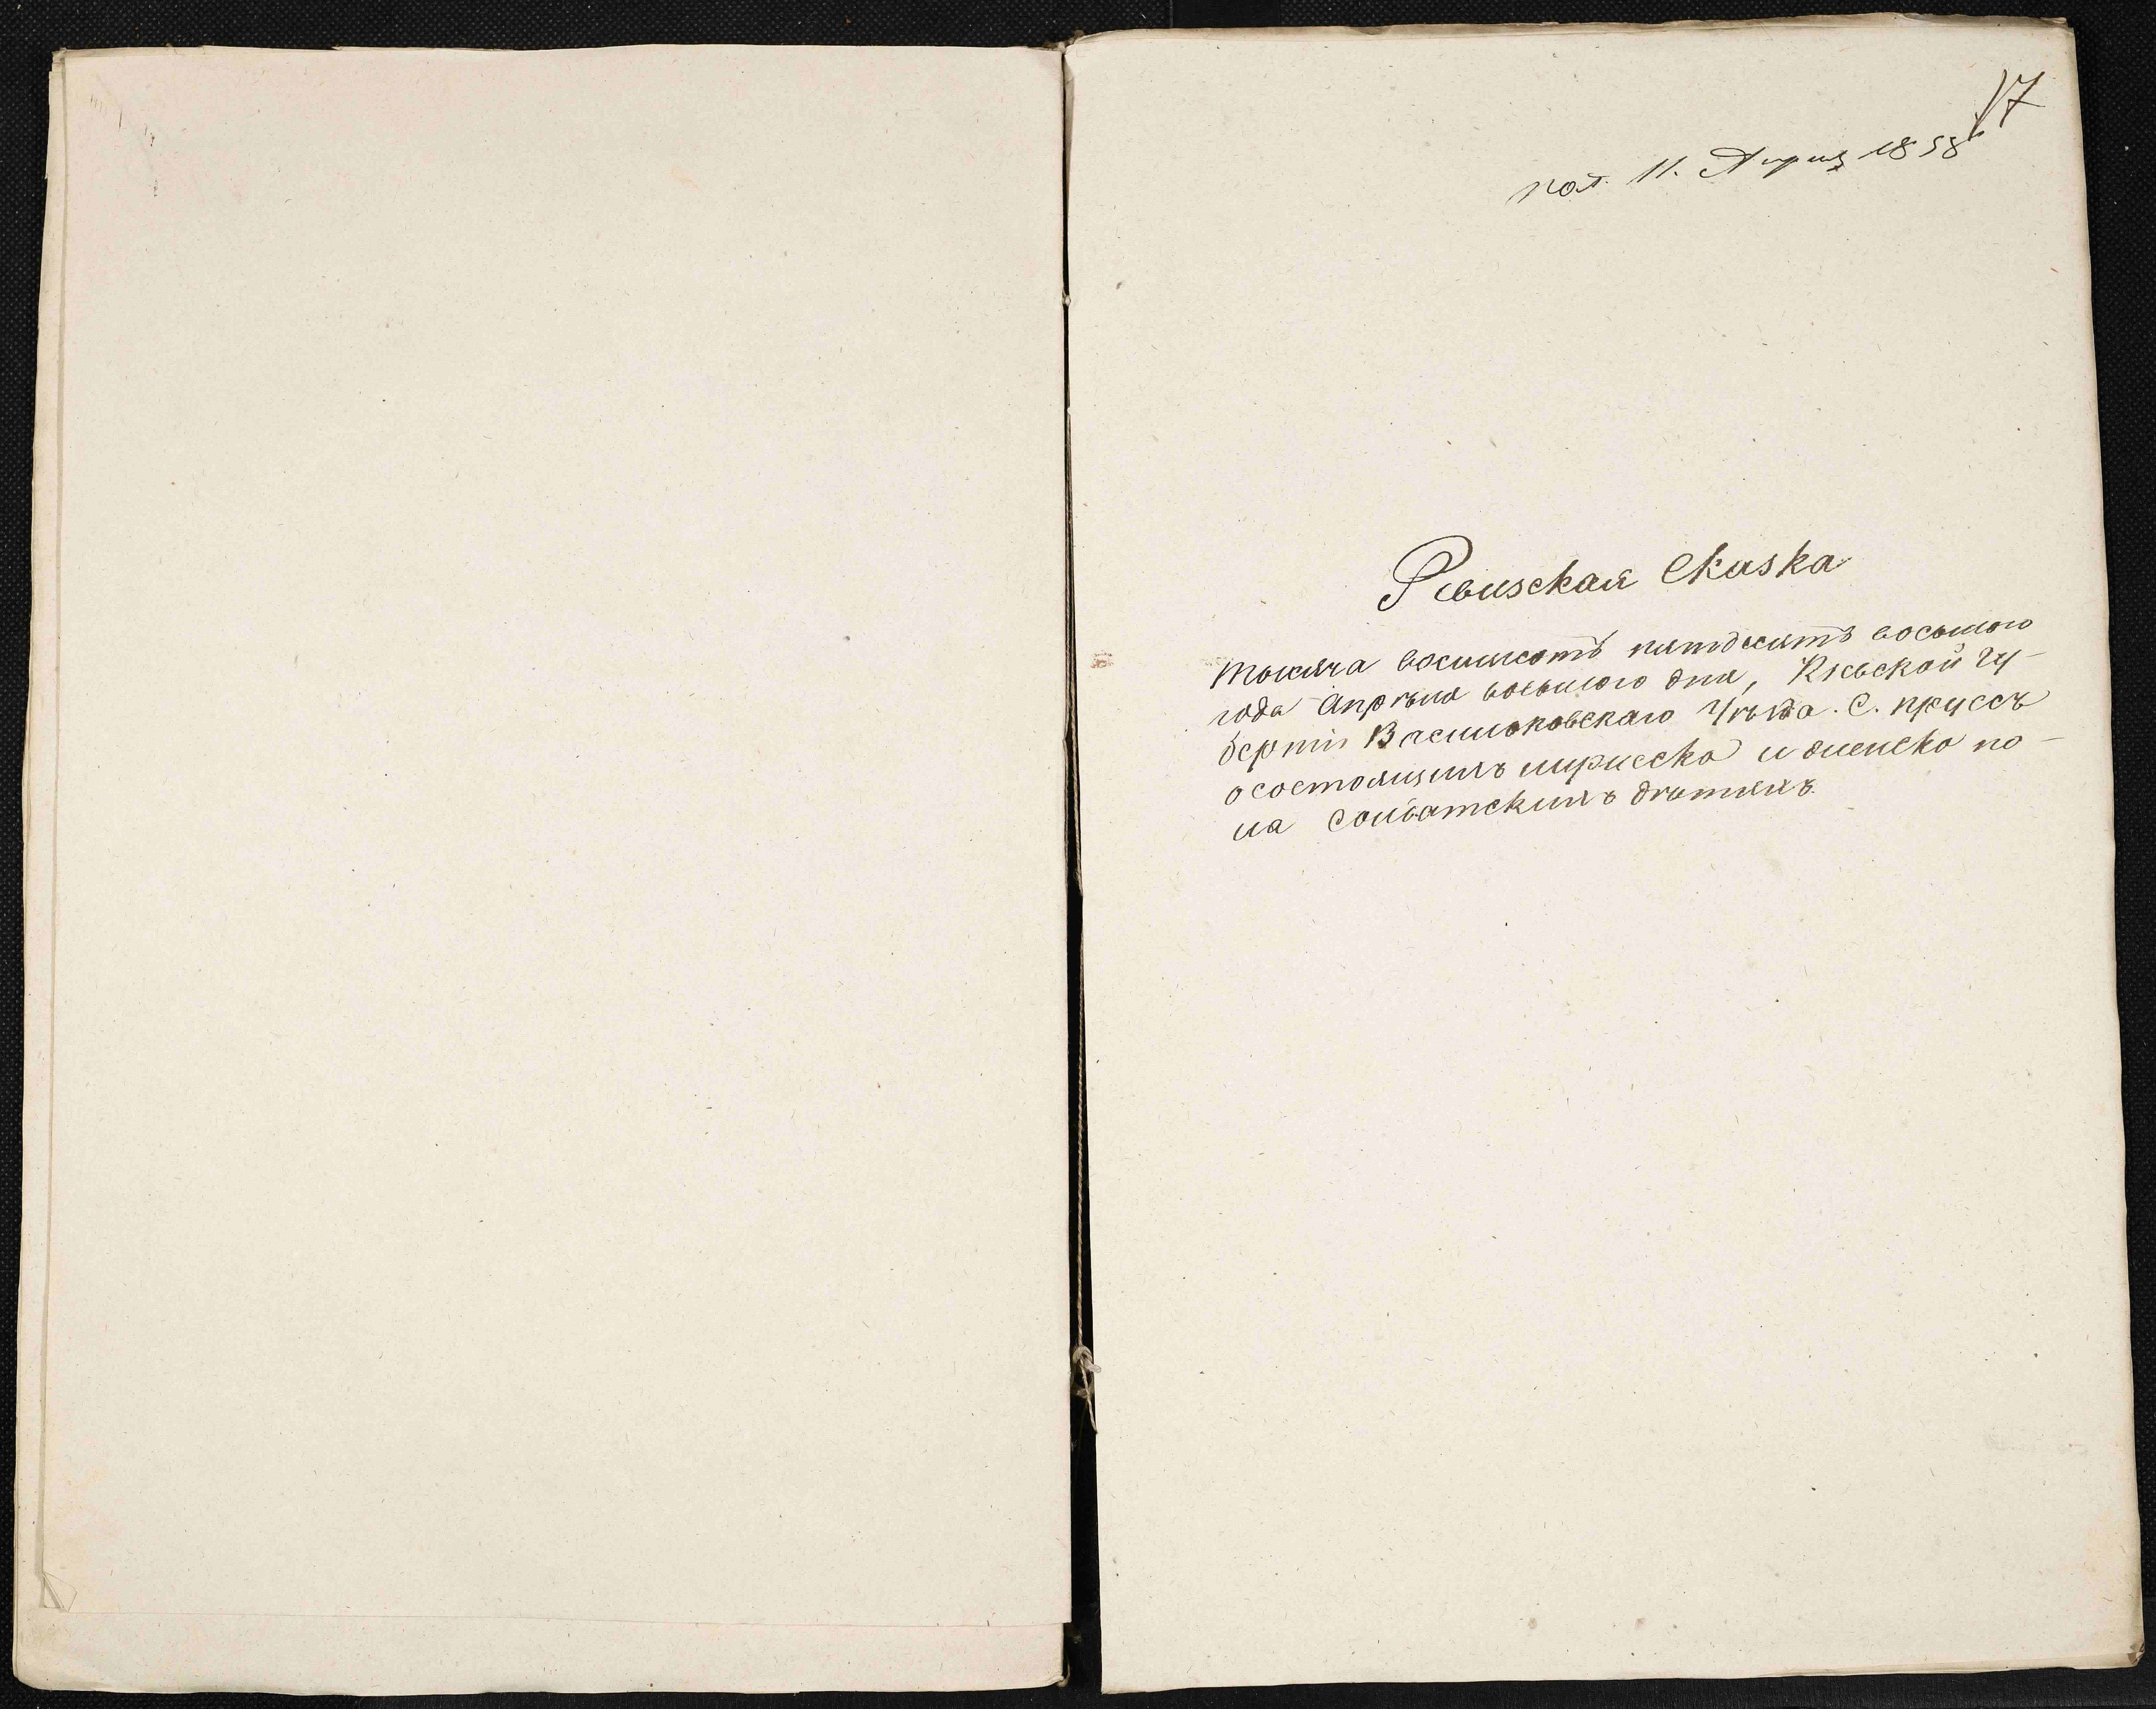 17
пол. 11. Апреля 1858
Ревизская Сказка
тысяча восимсотъ пятдесятъ восьмого
года Апрѣля восьмого дня, Кіевской Гу-
берніи Васильковскаго Уѣзда. С. Пруссъ
о состоящихъ мужеска и женска по-
ла Солдатскихъ дѣтяхъ